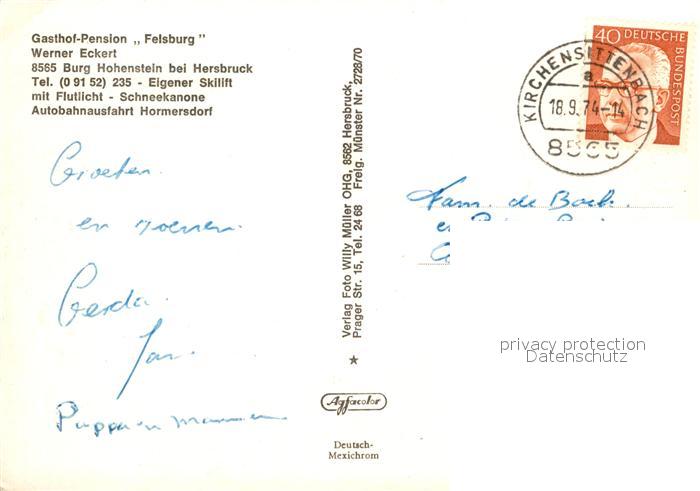 Gasthof-Pension „ Felsburg "
Werner Eckert
8565 Burg Hohenstein bei Hersbruck
Tel. (0 91 52) 235 - Eigener Skilift
mit Flutlicht - Schneekanone
Autobahnausfahrt Hormersdorf
Groeten
en zoenen.
Gerda.
Jan.
Verlag Foto Willy Müller OHG, 8562 Hersbruck,
Prager Str. 15, Tel. 24 68 Freig. Münster Nr. 2728/70
Agfacolor
Deutsch-
Mexichrom
40 DEUTSCHE
BUNDESPOST
KIRCHENSITTENBACH
a
18.9.74-14
8565
Fam. de Bock.
privacy protection
Datenschutz